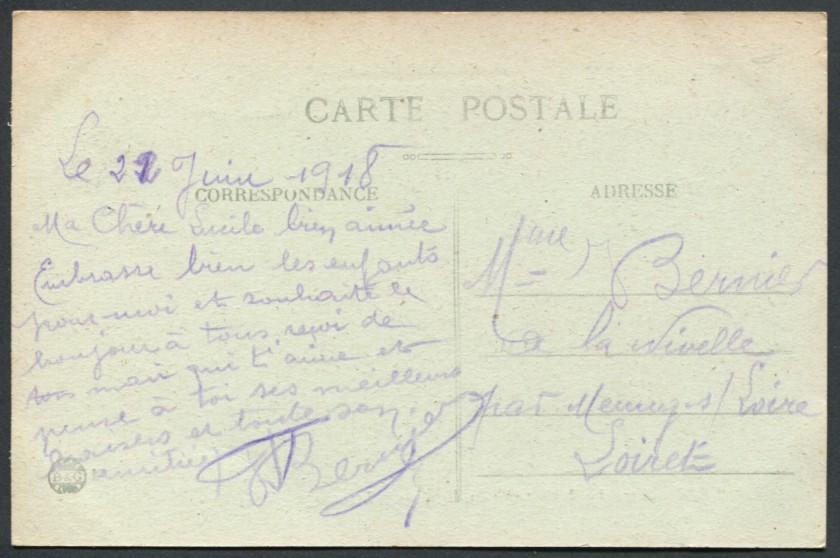 CARTE POSTALE
Le 22 Juin 1918
CORRESPONDANCE
Ma Chère Lucile bien aimée
Embrasse bien les enfants
pour moi et souhaite le
bonjour à tous reçoi de
ton mari qui t'aime et
pense à toi ses meilleurs
baisers et toute son
amitié
Bernier
B&G
ADRESSE
Mme Bernier
à la Nivelle
par Meung s/ Loire
Loiret